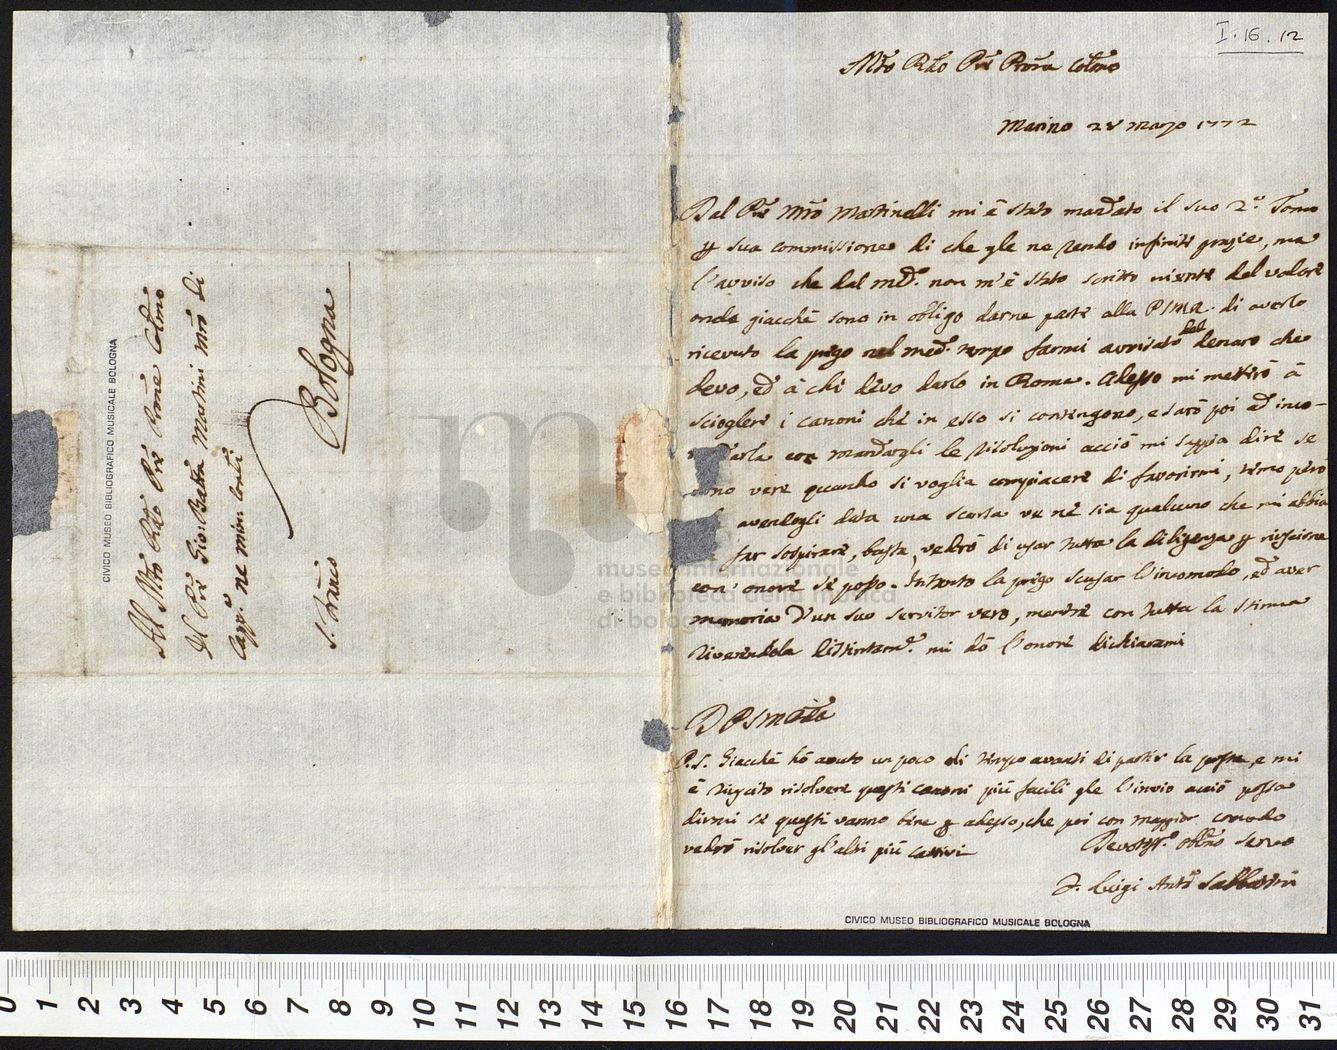 I. 16. 12
Mto Rdo Pre Prone Colmo
Marino 28 Marzo 1772
Dal Pre Mro Martinelli mi è stato mandato il suo 2.º Tomo
p sua commissione di che gle ne rendo infinite grazie, ma
l'avviso che dal med.º non m'è stato scritto niente del valore
onde giacchè sono in obligo darne parte alla PSMR. di averlo
ricevuto la prego nel med.º tempo farmi avvisato del denaro che
devo, ed à chi devo darlo in Roma. Adesso mi metterò à
sciogliere i canoni che in esso si contengono, e sarò poi ad inco-
darla con mandargli le risoluzioni acciò mi sappia dire se
sono vere quando si voglia compiacere di favorirmi, temo però
avendogli data una scorsa ve ne sia qualcuno che mi abbia
far sospirare, basta, vedrò di usar tutta la diligenza p riuscirne
con onore se posso. Intanto la prego scusar l'incomodo, ed aver
memoria d'un suo servitor vero, mentre con tutta la stima
riverendola distintam.e mi dò l'onore dichiararmi
D PSM Rda
P.S. Giacchè hò avuto un poco di tempo avanti di partir la posta, e mi
è riuscito risolvere questi canoni più facili gle l'invio acciò possa
dirmi se questi vanno bene p adesso, che poi con maggior comodo
vedrò risolver gl'altri più cattivi
Devotiss.º obblmo Servo
F. Luigi Antº Sabbatini
Al Mto Rdo Pre Prone Colmo
Il Pre Gio: Batta Martini Mro di
Capp.ª ne Min: Conli
S. Franco
Bologna
CIVICO MUSEO BIBLIOGRAFICO MUSICALE BOLOGNA
CIVICO MUSEO BIBLIOGRAFICO MUSICALE BOLOGNA
museo internazionale
e biblioteca della musica
di bologna
0 1 2 3 4 5 6 7 8 9 10 11 12 13 14 15 16 17 18 19 20 21 22 23 24 25 26 27 28 29 30 31